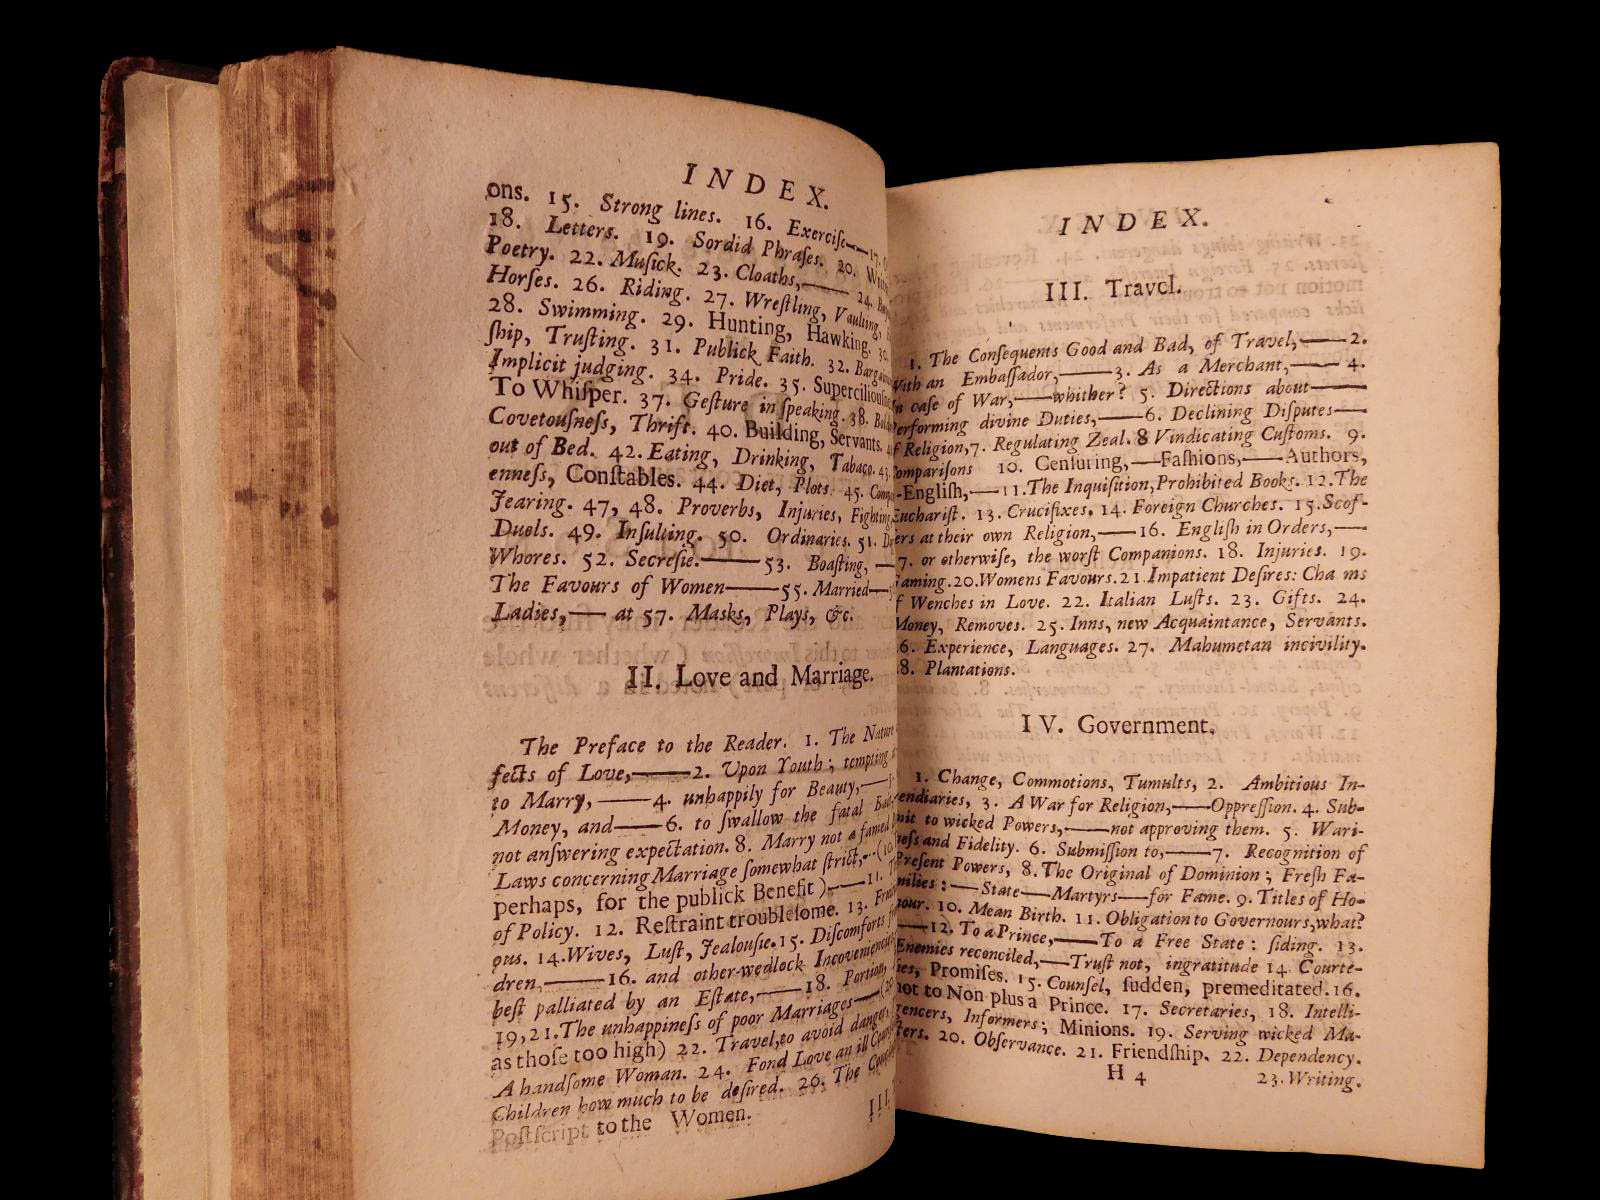 INDEX.
ons. 15. Strong lines. 16. Exercise—17.
18. Letters. 19. Sordid Phraſes. 20.
Poetry. 22. Muſick. 23. Cloaths,—— 24.
Horſes. 26. Riding. 27. Wreſtling, Vaulting,
28. Swimming. 29. Hunting, Hawking. 30.
ſhip, Truſting. 31. Publick Faith. 32.
Implicit judging. 34. Pride. 35.
To Whiſper. 37. Geſture in ſpeaking. 38.
Covetouſneſs, Thrift. 40. Building, Servants.
out of Bed. 42. Eating, Drinking, Tabaco. 43.
enneſs, Conſtables. 44. Diet, Plots. 45.
Jearing. 47, 48. Proverbs, Injuries, Fighting,
Duels. 49. Inſulting. 50. Ordinaries. 51.
Whores. 52. Secreſie.—— 53. Boaſting, —
The Favours of Women——55. Married—
Ladies,— at 57. Masks, Plays, &c.
II. Love and Marriage.
The Preface to the Reader. 1. The Nature
fects of Love,——2. Upon Youth; tempting
to Marry, —— 4. unhappily for Beauty,—
Money, and——6. to ſwallow the fatal
not anſwering expectation. 8. Marry not a famed
Laws concerning Marriage ſomewhat ſtrict,--(10.
perhaps, for the publick Benefit)——11.
of Policy. 12. Reſtraint troubleſome. 13.
ous. 14. Wives, Luſt, Jealouſie. 15. Diſcomforts
dren,——16. and other-wedlock Inconveniences
beſt palliated by an Eſtate,——18. Portion,
19, 21. The unhappineſs of poor Marriages—(20
as thoſe too high) 22. Travel, to avoid danger,
A handſome Woman. 24. Fond Love an ill
Children how much to be deſired. 26. The
Poſtſcript to the Women.
III.
INDEX.
III. Travel.
1. The Conſequents Good and Bad, of Travel,——2.
With an Embaſſador,——3. As a Merchant,—— 4.
In caſe of War,——whither? 5. Directions about——
performing divine Duties,——6. Declining Diſputes—
of Religion, 7. Regulating Zeal. 8 Vindicating Cuſtoms. 9.
Compariſons 10. Cenſuring,—Faſhions,—Authors,
-Engliſh,—11. The Inquiſition, Prohibited Books. 12. The
Euchariſt. 13. Crucifixes. 14. Foreign Churches. 15. Scof-
fers at their own Religion,—16. Engliſh in Orders,—
17. or otherwiſe, the worſt Companions. 18. Injuries. 19.
Gaming. 20. Womens Favours. 21 Impatient Deſires: Cha ms
of Wenches in Love. 22. Italian Luſts. 23. Gifts. 24.
Money, Removes. 25. Inns, new Acquaintance, Servants.
26. Experience, Languages. 27. Mahumetan incivility.
28. Plantations.
IV. Government.
1. Change, Commotions, Tumults, 2. Ambitious In-
cendiaries, 3. A War for Religion,—Oppreſſion. 4. Sub-
mit to wicked Powers,——not approving them. 5. Wari-
neſs and Fidelity. 6. Submiſſion to,——7. Recognition of
Preſent Powers, 8. The Original of Dominion; Freſh Fa-
milies:—State—Martyrs—for Fame. 9. Titles of Ho-
nour. 10. Mean Birth. 11. Obligation to Governours, what?
——12. To a Prince,——To a Free State: ſiding. 13.
Enemies reconciled,—Truſt not, ingratitude 14 Courte-
ſies, Promiſes. 15. Counſel, ſudden, premeditated. 16.
not to Non-plus a Prince. 17. Secretaries, 18. Intelli-
gencers, Informers; Minions. 19. Serving wicked Ma-
ſters. 20. Obſervance. 21. Friendſhip. 22. Dependency.
H 4 23. Writing.